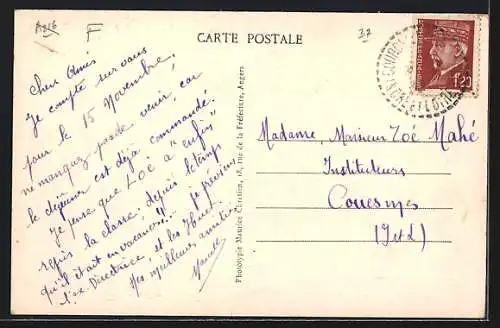 A216
F
CARTE POSTALE
37
1f20
Cher Amis
Je compte sur vous
pour le 15 Novembre,
ne manquez pas de venir, car
le déjeuner est déjà commandé.
Je pense que ZOË a "enfin"
repris la classe, depuis le temps
qu'il était en vacances!... je préviens
l'ex-Directrice, et les
Mes meilleures amitiés
Phototypie Maurice Chrétien, 18, rue de la Préfecture, Angers
Madame, Monsieur Zoé Mahé
Instituteurs
Couesmes
(I et L)